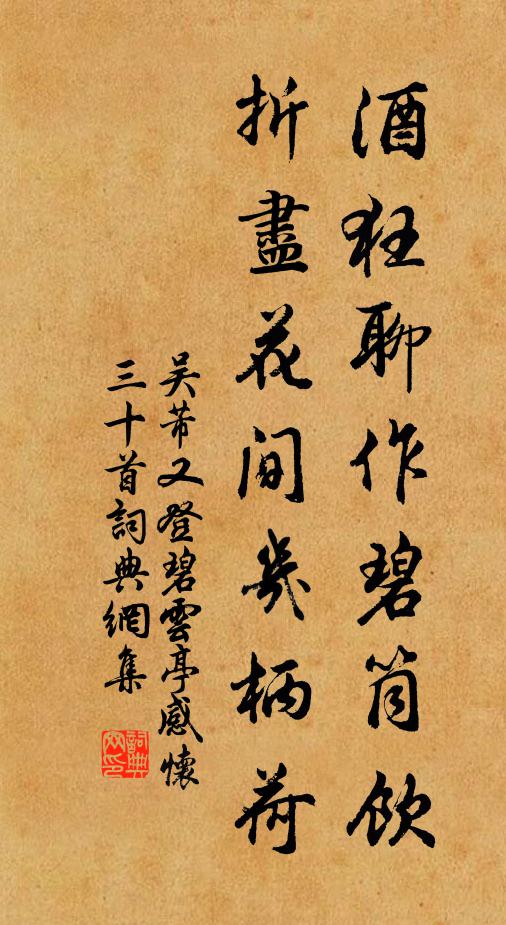 酒狂聊作碧筒飲
折盡花間幾柄荷
吳芾又登碧雲亭感懷
三十首詞典網集
詞典網印